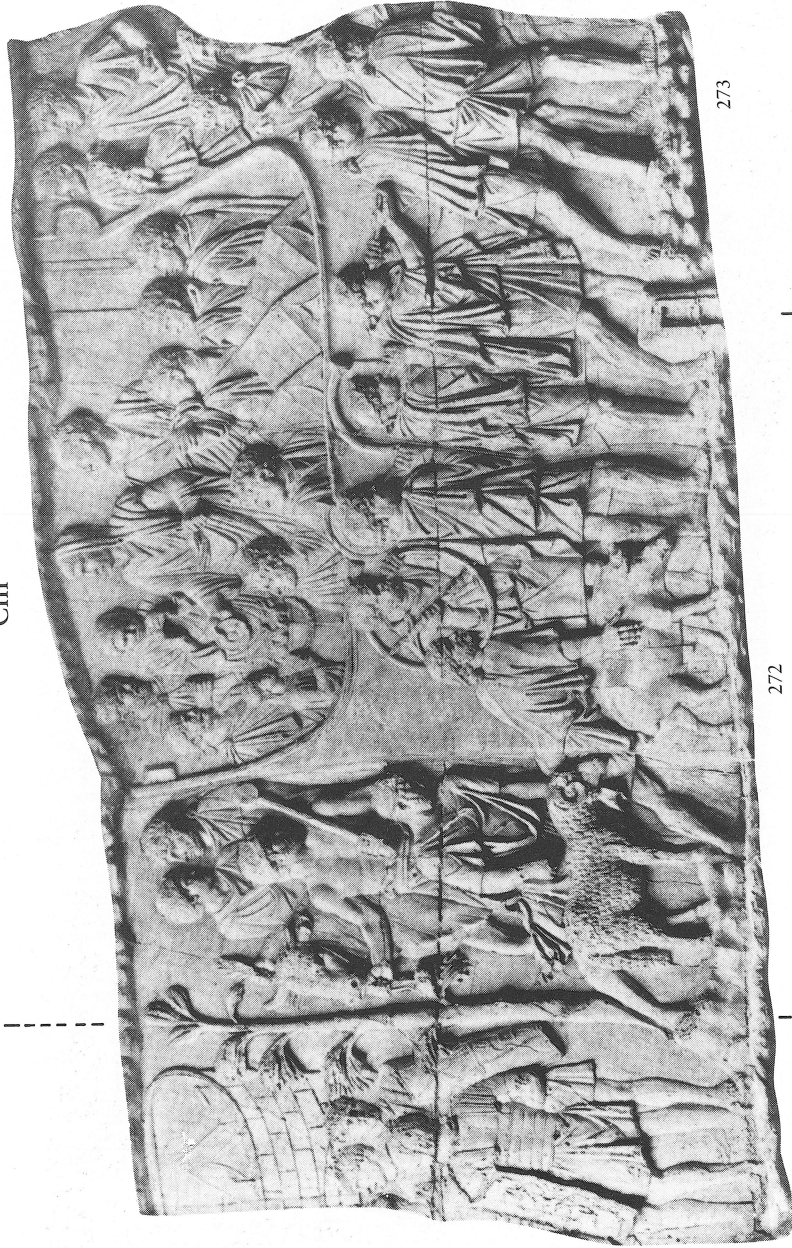 CIII
272
273